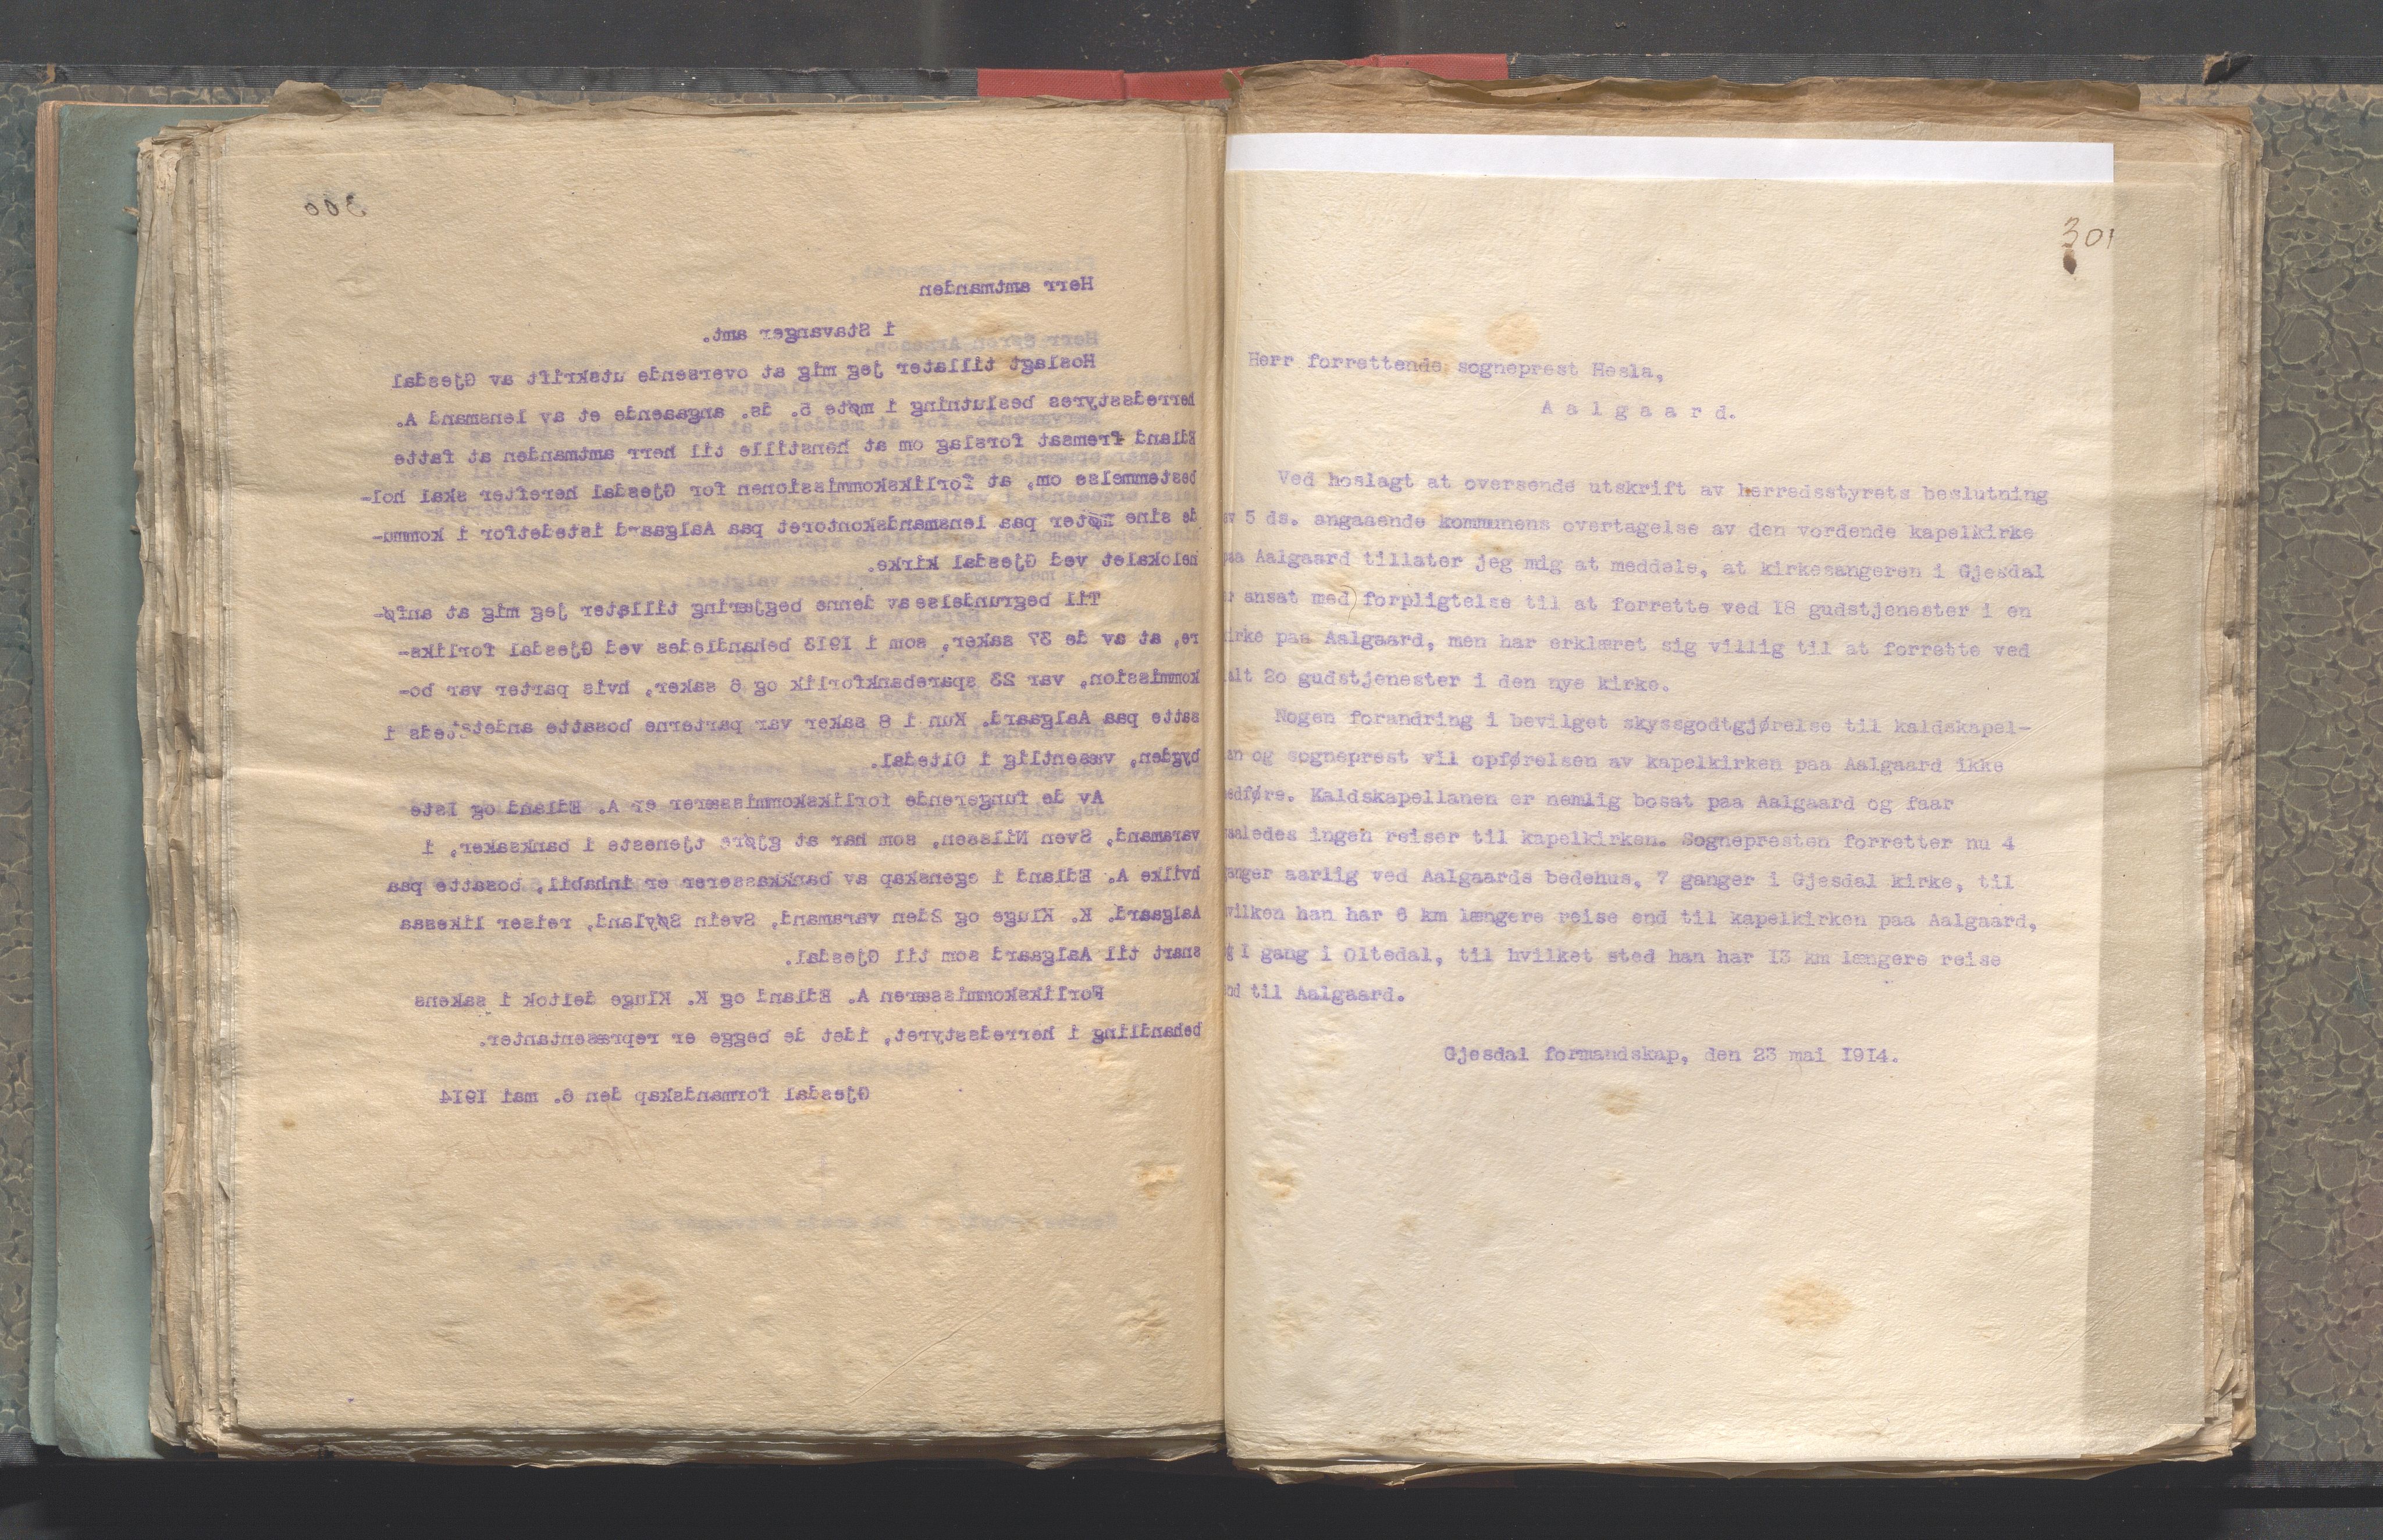 300
Herr amtmanden
i Stavanger amt.
Hoslagt tillater jeg mig at oversende utskrift av Gjesdal
herredsstyres beslutning i møte 5. ds. angaaende et av lensmand A.
Edland fremsat forslag om at henstille til herr amtmanden at fatte
bestemmelse om, at forlikskommissionen for Gjesdal herefter skal hol-
de sine møter paa lensmandskontoret paa Aalgaard istedetfor i kommu-
nelokalet ved Gjesdal kirke.
Til begrundelse av denne begjæring tillater jeg mig at anfø-
re, at av de 37 saker, som i 1913 behandledes ved Gjesdal forliks-
kommission, var 23 sparebankforlik og 6 saker, hvis parter var bo-
satte paa Aalgaard. Kun i 8 saker var parterne bosatte andetsteds i
bygden, væsentlig i Oltedal.
Av de fungerende forlikskommissærer er A. Edland og 1ste
varamand, Sven Nilssen, som har at gjøre tjeneste i banksaker, i
hvilke A. Edland i egenskap av bankkasserer er inhabil, bosatte paa
Aalgaard. K. Kluge og 2den varamand, Svein Søyland, reiser likesaa
snart til Aalgaard som til Gjesdal.
Forlikskommissæren A. Edland og K. Kluge deltok i sakens
behandling i herredsstyret, idet de begge er repræsentanter.
Gjesdal formandskap den 6. mai 1914
301
Herr forrettende sogneprest Hesla,
Aalgaard.
Ved hoslagt at oversende utskrift av herredsstyrets beslutning
av 5 ds. angaaende kommunens overtagelse av den vordende kapelkirke
paa Aalgaard tillater jeg mig at meddele, at kirkesangeren i Gjesdal
er ansat med forpligtelse til at forrette ved 18 gudstjenester i en
kirke paa Aalgaard, men har erklæret sig villig til at forrette ved
ialt 20 gudstjenester i den nye kirke.
Nogen forandring i bevilget skyssgodtgjørelse til kaldskapel-
lan og sogneprest vil opførelsen av kapelkirken paa Aalgaard ikke
medføre. Kaldskapellanen er nemlig bosat paa Aalgaard og faar
saaledes ingen reiser til kapelkirken. Sognepresten forretter nu 4
ganger aarlig ved Aalgaards bedehus, 7 ganger i Gjesdal kirke, til
hvilken han har 6 km længere reise end til kapelkirken paa Aalgaard,
og 1 gang i Oltedal, til hvilket sted han har 13 km længere reise
end til Aalgaard.
Gjesdal formandskap, den 23 mai 1914.